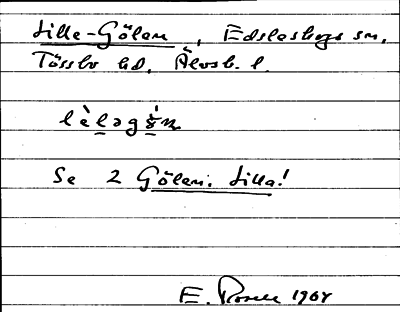 Lilla-Gölen, Edsleskogs sn,
Tössbo hd, Älvsb. l.
Se 2 Gölen. Lilla!
E. Rosell 1964